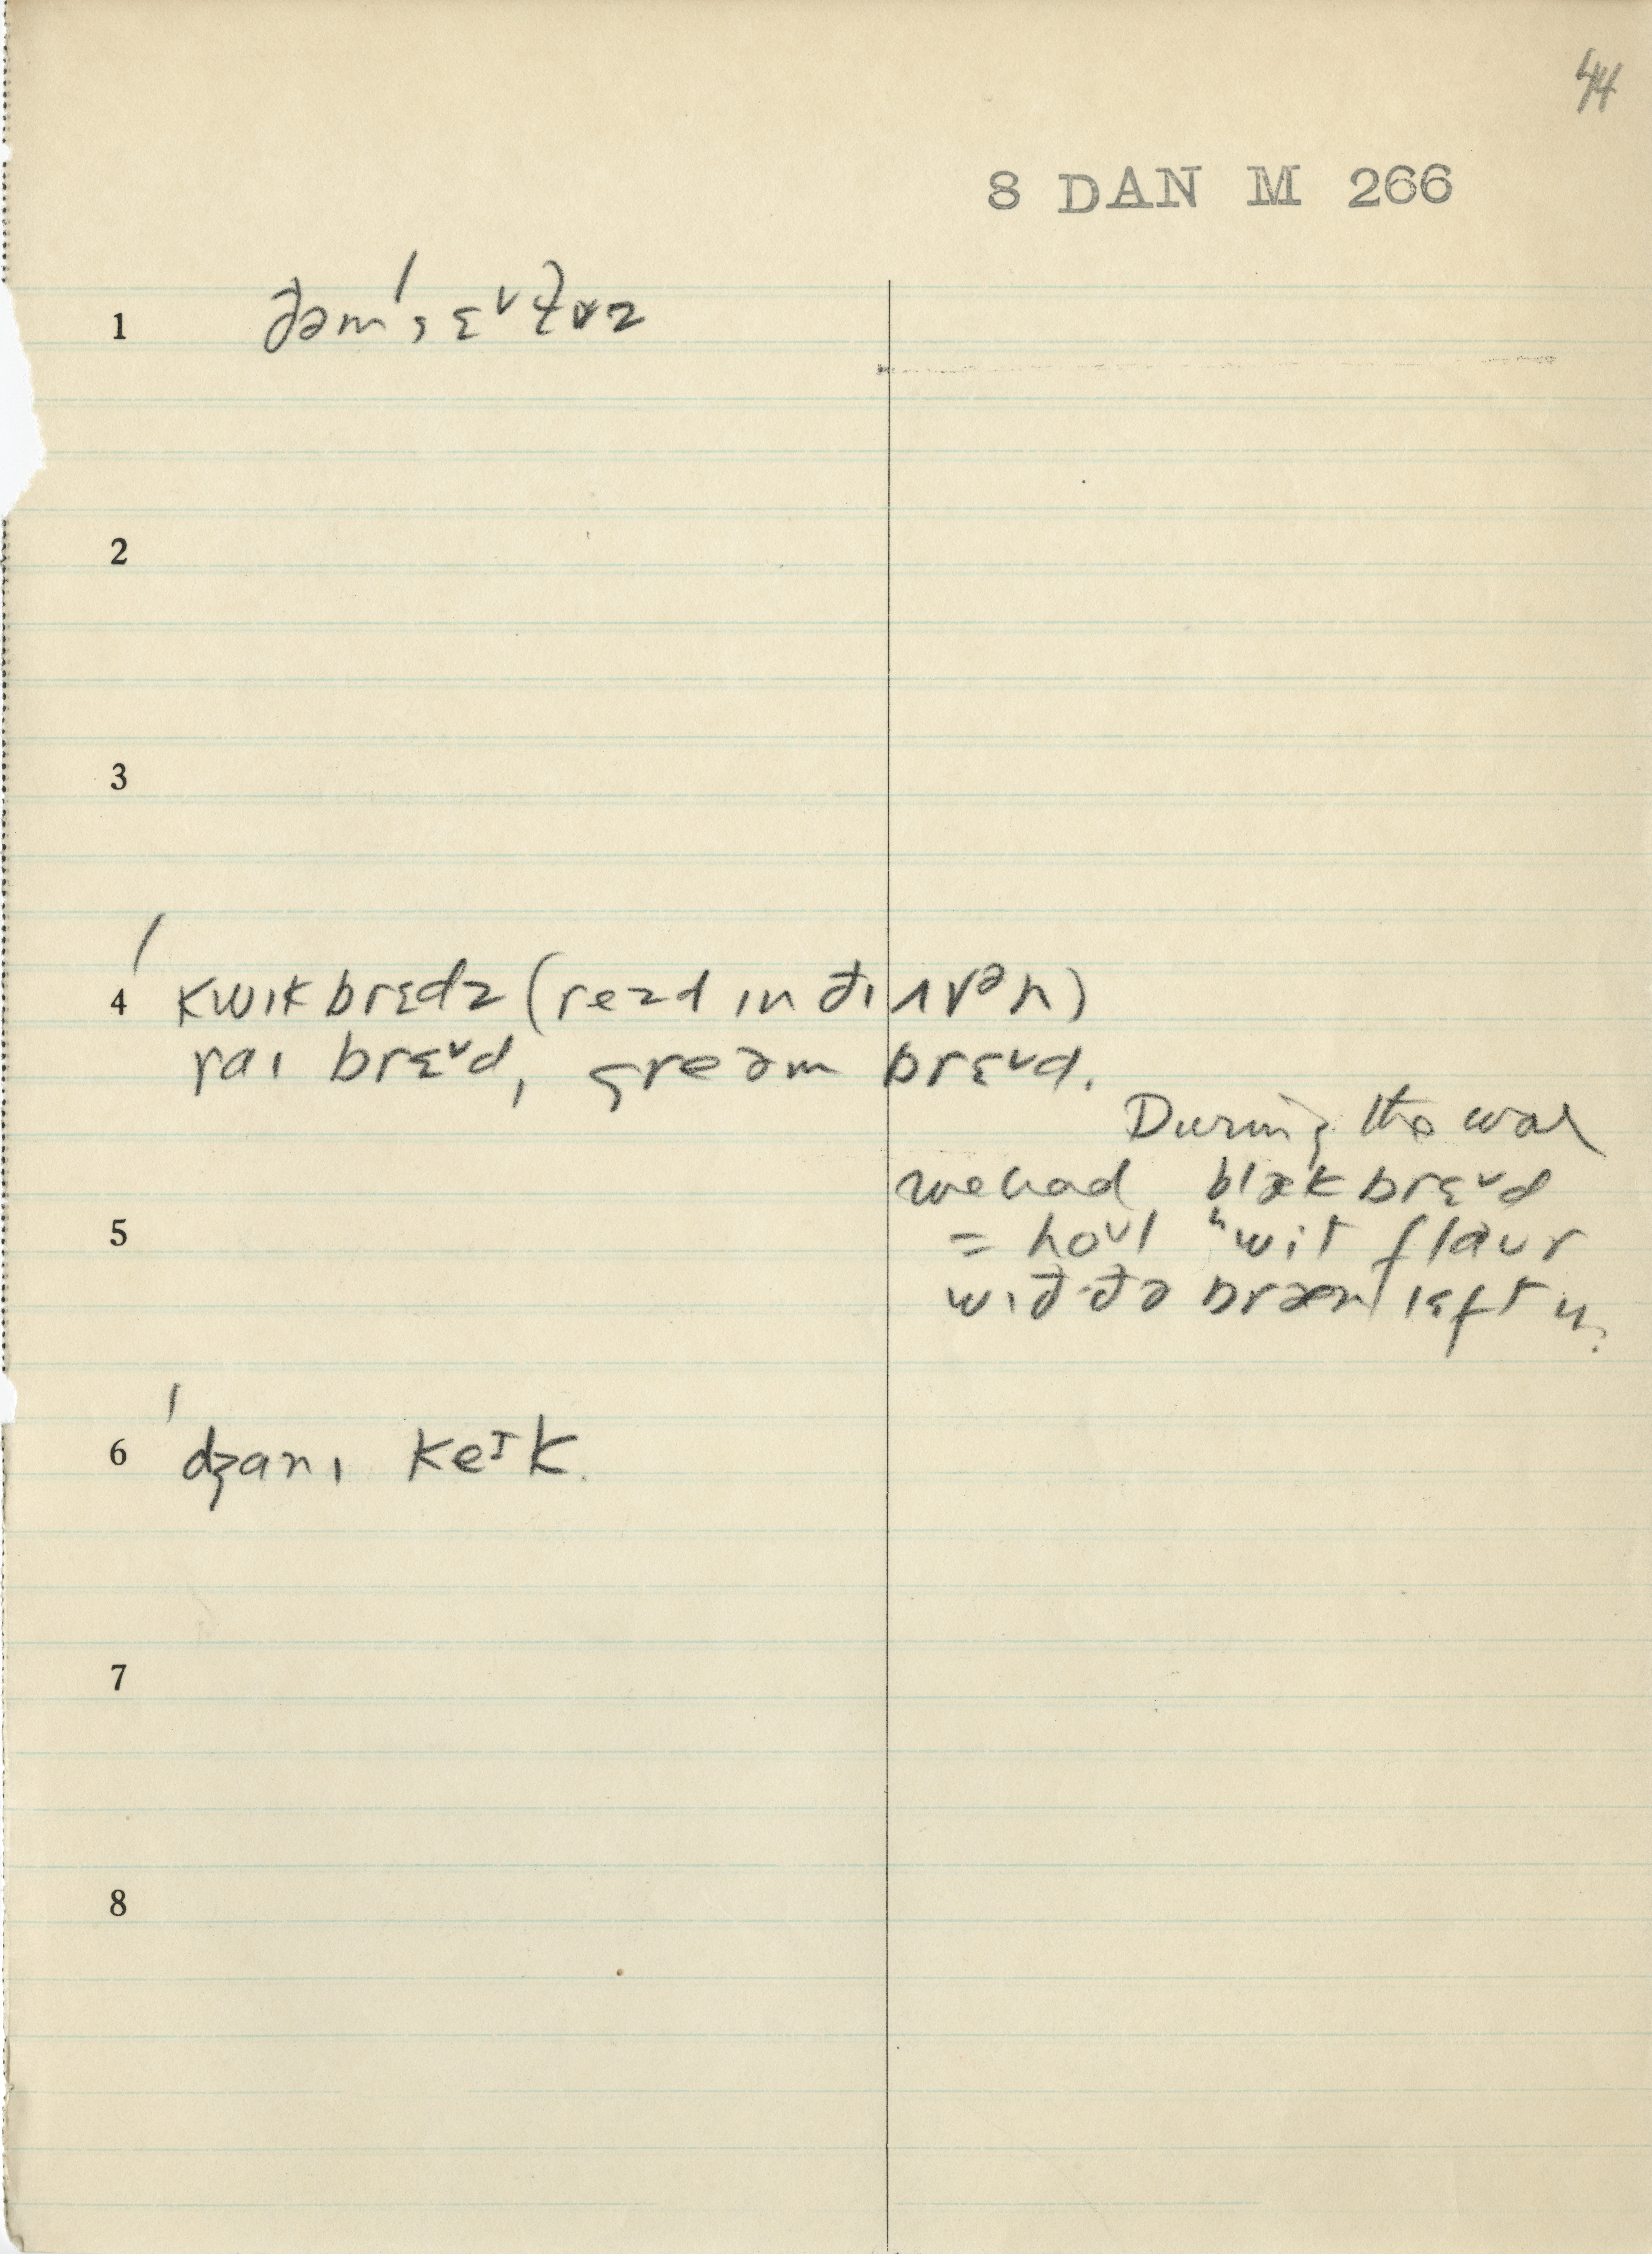 44
8 DAN M 266
1
2
3
4 kwɪk brɛdz (rezd ɪn ðɪ ʌvᵊn)
raɪ brɛᵛd, greəm brɛᵛd.
During the war
we had blæk brɛᵛd
5 = hoᵘl ʰwit flaʊr
wɪð ðə bræn lɛft ɪn.
6 ˈdʒanɪ keᶦk.
7
8